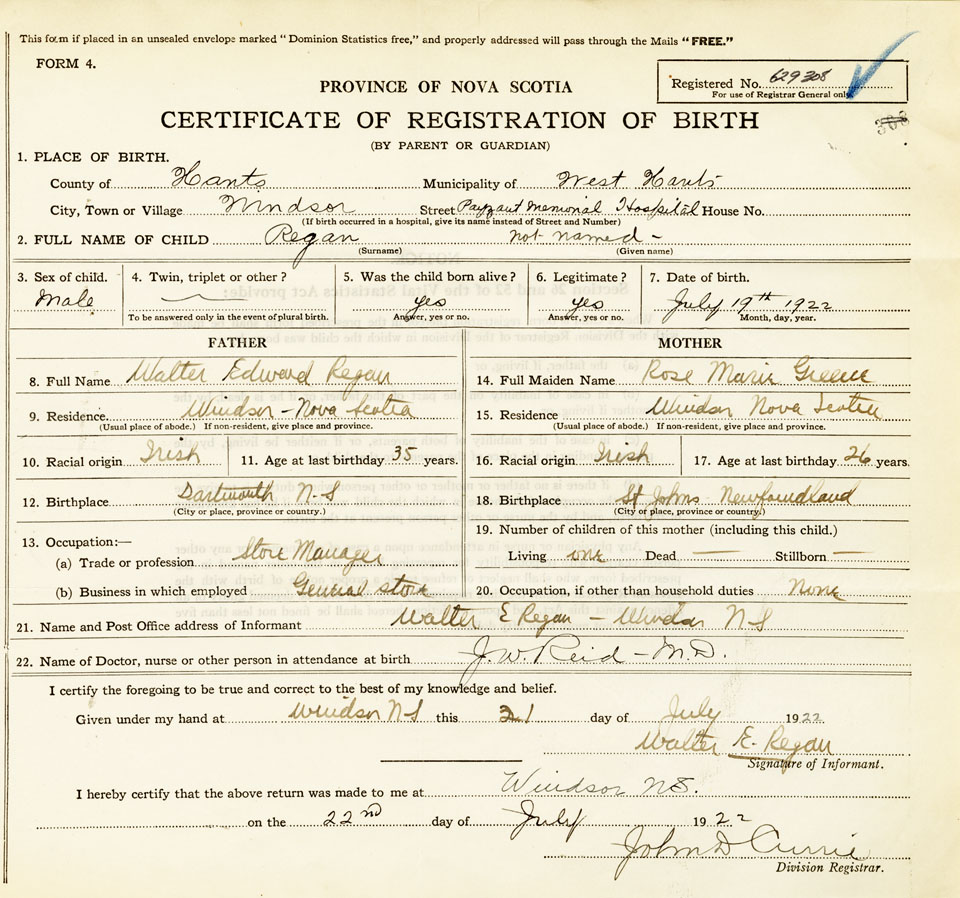 This form if placed in an unsealed envelope marked "Dominion Statistics free," and properly addressed will pass through the Mails "FREE."
FORM 4.
Registered No. 629308
For use of Registrar General only
PROVINCE OF NOVA SCOTIA
308
CERTIFICATE OF REGISTRATION OF BIRTH
(BY PARENT OR GUARDIAN)
1. PLACE OF BIRTH.
County of Hants Municipality of West Hants
City, Town or Village Windsor Street Payzant Memorial Hospital House No.
(If birth occurred in a hospital, give its name instead of Street and Number)
2. FULL NAME OF CHILD Regan not named -
(Surname) (Given name)
3. Sex of child. 4. Twin, triplet or other? 5. Was the child born alive? 6. Legitimate? 7. Date of birth.
Male yes yes July 19th 1922
To be answered only in the event of plural birth. Answer, yes or no. Answer, yes or no. Month, day, year.
FATHER MOTHER
8. Full Name Walter Edward Regan 14. Full Maiden Name Rose Marie Greene
9. Residence Windsor - Nova Scotia 15. Residence Windsor Nova Scotia
(Usual place of abode.) If non-resident, give place and province. (Usual place of abode.) If non-resident, give place and province.
10. Racial origin Irish 11. Age at last birthday 35 years. 16. Racial origin Irish 17. Age at last birthday 26 years.
12. Birthplace Dartmouth N-S 18. Birthplace St Johns Newfoundland
(City or place, province or country.) (City or place, province or country.)
19. Number of children of this mother (including this child.)
13. Occupation:—
(a) Trade or profession Store Manager Living one Dead — Stillborn —
(b) Business in which employed General store 20. Occupation, if other than household duties None
21. Name and Post Office address of Informant Walter E Regan - Windsor N S
22. Name of Doctor, nurse or other person in attendance at birth J. W. Reid - M.D.
I certify the foregoing to be true and correct to the best of my knowledge and belief.
Given under my hand at Windsor N-S this 21 day of July 1922
Walter E. Regan
Signature of Informant.
I hereby certify that the above return was made to me at Windsor N.S.
on the 22nd day of July 1922
John D Currie
Division Registrar.